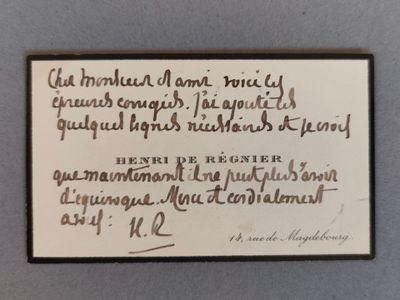 Cher Monsieur et ami voici les
épreuves corrigées. J'ai ajouté les
quelques lignes nécessaires et je crois
HENRI DE RÉGNIER
que maintenant il ne peut plus y avoir
d'équivoque. Merci et cordialement
à vous.
H. R
14, rue de Magdebourg.